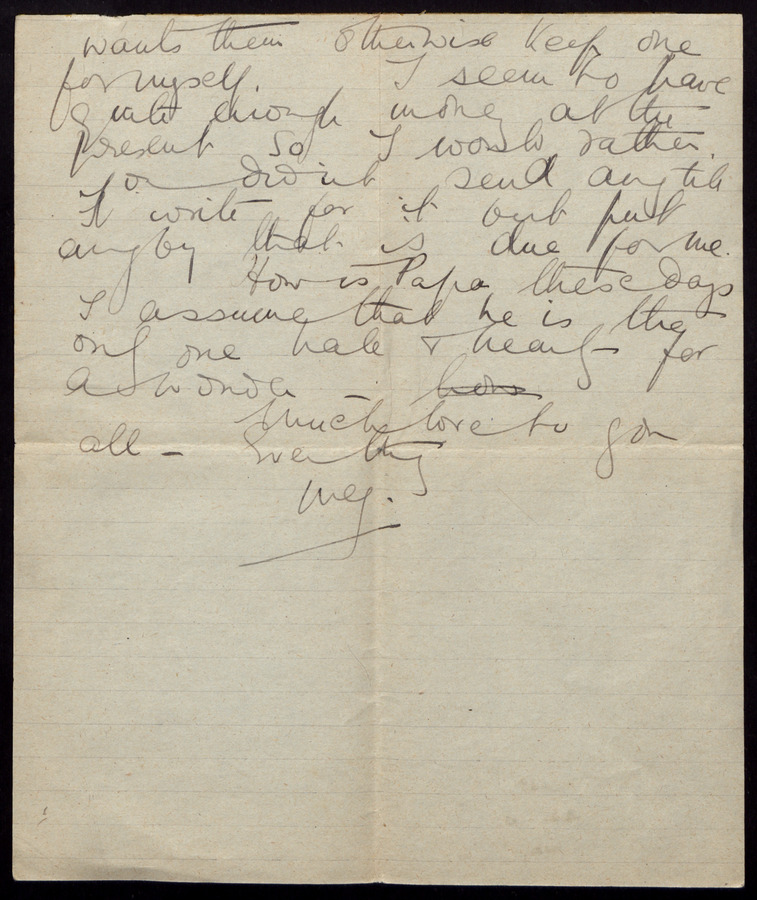 wants them otherwise keep one
for myself. I seem to have
quite enough money at the
present so I would rather
you didn't send any till
I write for it but put
any by that is due for me.
How is Papa these days
I assume that he is the
only one hale & hearty for
a wonder
Much love to you
all - Ever thy
Meg.